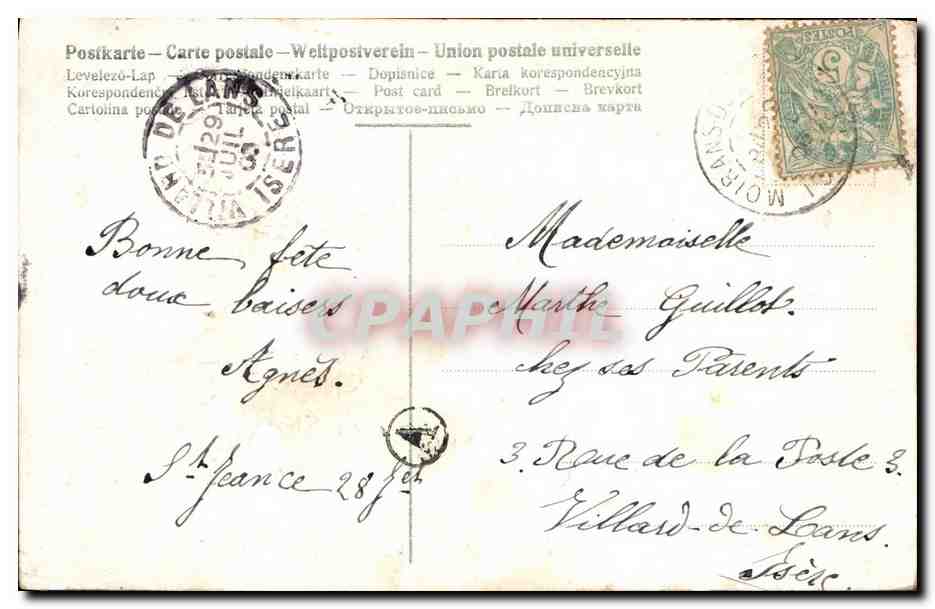 Postkarte — Carte postale — Weltpostverein — Union postale universelle
Levelező-Lap — Correspondenzkarte — Dopisnice — Karta korespondencyjna
Korespondenční lístek — Briefkaart — Post card — Brefkort — Brevkort
Cartolina postale — Tarjeta postal — Открытое-письмо — Дописна карта
VILLARD DE LANS
29
JUIL
ISERE
MOIRANS
POSTES
5
Bonne fête
doux baisers
Agnès.
28
A
CPAPHIL
Mademoiselle
Marthe Guillot.
chez ses Parents
3. Rue de la Poste 3.
Villard-de-Lans.
Isère